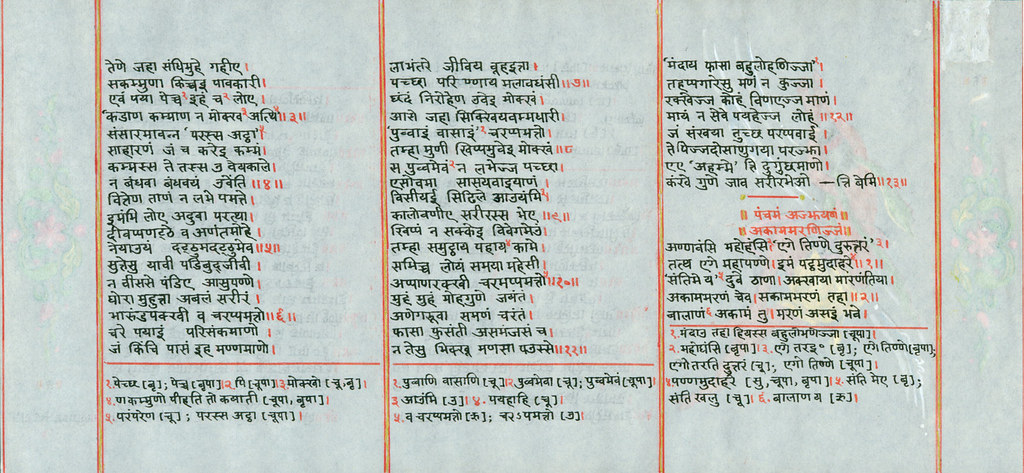 तेणे जहा संधिमुहे गहीए ।
सकम्मुणा किच्चइ पावकारी ।
एवं पया पेच्च१ इहं च२ लोए ।
'कडाण कम्माण न मोक्ख३ अत्थि'४ ॥३॥
संसारमावन्न 'परस्स अट्ठा'५ ।
साहारणं जं च करेइ कम्मं ।
कम्मस्स ते तस्स उ वेयकाले ।
न बंधवा बंधवयं उवेंति ॥४॥
वित्तेण ताणं न लभे पमत्ते ।
इमंमि लोए अदुवा परत्था ।
दीवप्पणट्ठे व अणंतमोहे ।
नेयाउयं दट्ठुमदट्ठुमेव ॥५॥
सुत्तेसु यावी पडिबुद्धजीवी ।
न वीससे पंडिए आसुपण्णे ।
घोरा मुहुत्ता अबलं सरीरं ।
भारुंडपक्खी व चरप्पमत्तो ॥६॥
चरे पयाइं परिसंकमाणो ।
जं किंचि पासं इह मण्णमाणो ।
१. पेच्छ [बृ] ; पेच्च [बृपा] । २. पि [चूपा] । ३. मोक्खो [चू, बृ] ।
४. ण कम्मुणो पीहति तो कयाती [चूपा, बृपा] ।
५. परंपरेण [चू] ; परस्स अट्ठा [चूपा] ।
लाभंतरे जीविय वूहइत्ता ।
पच्छा परिण्णाय मलावधंसी ॥७॥
छंदं निरोहेण उवेइ मोक्खं ।
आसे जहा सिक्खियवम्मधारी ।
'पुव्वाइं वासाइं'१ चरप्पमत्तो२ ।
तम्हा मुणी खिप्पमुवेइ मोक्खं ॥८
स पुव्वमेवं२ न लभेज्ज पच्छा ।
एसोवमा सासयवाइयाणं ।
विसीयई सिढिले आउयंमि३ ।
कालोवणीए सरीरस्स भेए ॥९॥
खिप्पं न सक्केइ विवेगमेउं ।
तम्हा समुट्ठाय पहाय४ कामे ।
समिच्च लोयं समया महेसी ।
अप्पाणरक्खी चरमप्पमत्तो५ ॥१०॥
मुहुं मुहुं मोहगुणे जयंतं ।
अणेगरूवा समणं चरंतं ।
फासा फुसंती असमंजसं च ।
न तेसु भिक्खू मणसा पउस्से ॥११॥
१. पुव्वाणि वासाणि [चू] । २. पुव्वमेवा [चू] ; पुव्वमेवं [चूपा] ।
३. आउंमि [उ] । ४. पयहाहि [चू] ।
५. व चरप्पमत्तो [ऋ] ;
'मंदाय फासा बहुलोहणिज्जा'१ ।
तहप्पगारेसु मणं न कुज्जा ।
रक्खेज्ज कोहं विणएज्ज माणं ।
मायं न सेवे पयहेज्ज लोहं ॥१२॥
जे संखया तुच्छ परप्पवाई ।
ते पिज्जदोसाणुगया परज्झा ।
एए 'अहम्मे' त्ति दुगुंछमाणो ।
कंखे गुणे जाव सरीरभेओ —त्ति बेमि ॥१३॥
॥ पंचमं अज्झयणं ॥
॥ अकाममरणिज्जं ॥
अण्णवंसि महोहंसि२ 'एगे तिण्णे दुरुत्तरं'३ ।
तत्थ एगे महापण्णे । इमं पट्ठमुदाहरे४ ॥१॥
'संतिमे य'५ दुवे ठाणा । अक्खाया मारणंतिया ।
अकाममरणं चेव । सकाममरणं तहा ॥२॥
बालाणं६ अकामं तु । मरणं असइं भवे ।
१. मंदाउ तहा हियस्स बहुलोभणिज्जा [चूपा] ।
२. महोघंसि [बृपा] । ३. एगे तरइ [बृ] ; एगे तिण्णे [बृपा] ;
एगो तरति दुत्तरं [चू] ; एगो तिण्णे [चूपा] ।
४. पण्णमुदाहरे [सु, चूपा, बृपा] । ५. संति मेए [बृ] ;
संति खलु [चू] । ६. बालाण य [ऋ] ।